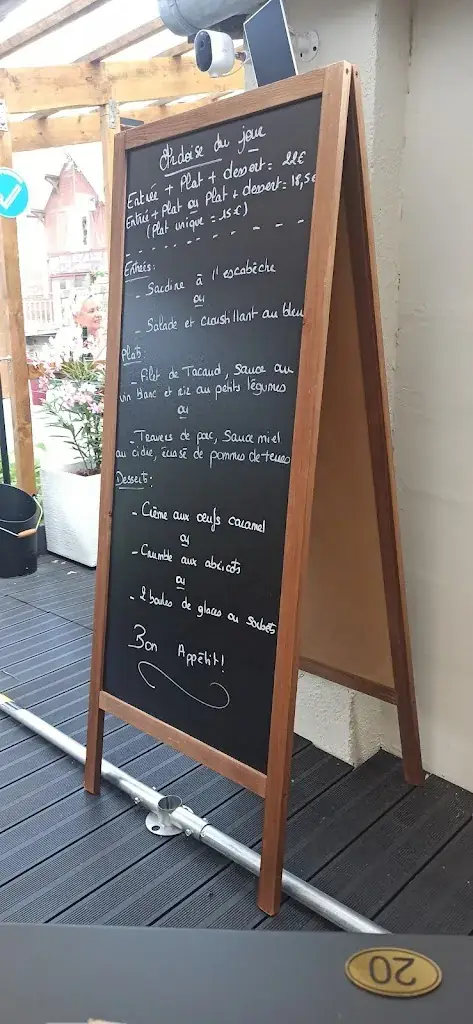 Ardoise du jour
Entrée + Plat + dessert = 22€
Entrée + Plat ou Plat + dessert = 18,5€
(Plat unique = 15€)
Entrées:
- Sardine à l'escabèche
ou
- Salade et croustillant au bleu
Plats:
- Filet de Tacaud, Sauce au
vin blanc et riz au petits légumes
ou
- Travers de porc, Sauce miel
au cidre, écrasé de pommes de terres
Desserts:
- Crème aux oeufs caramel
ou
- Crumble aux abricots
ou
- 2 boules de glaces ou sorbets
Bon Appétit!
20